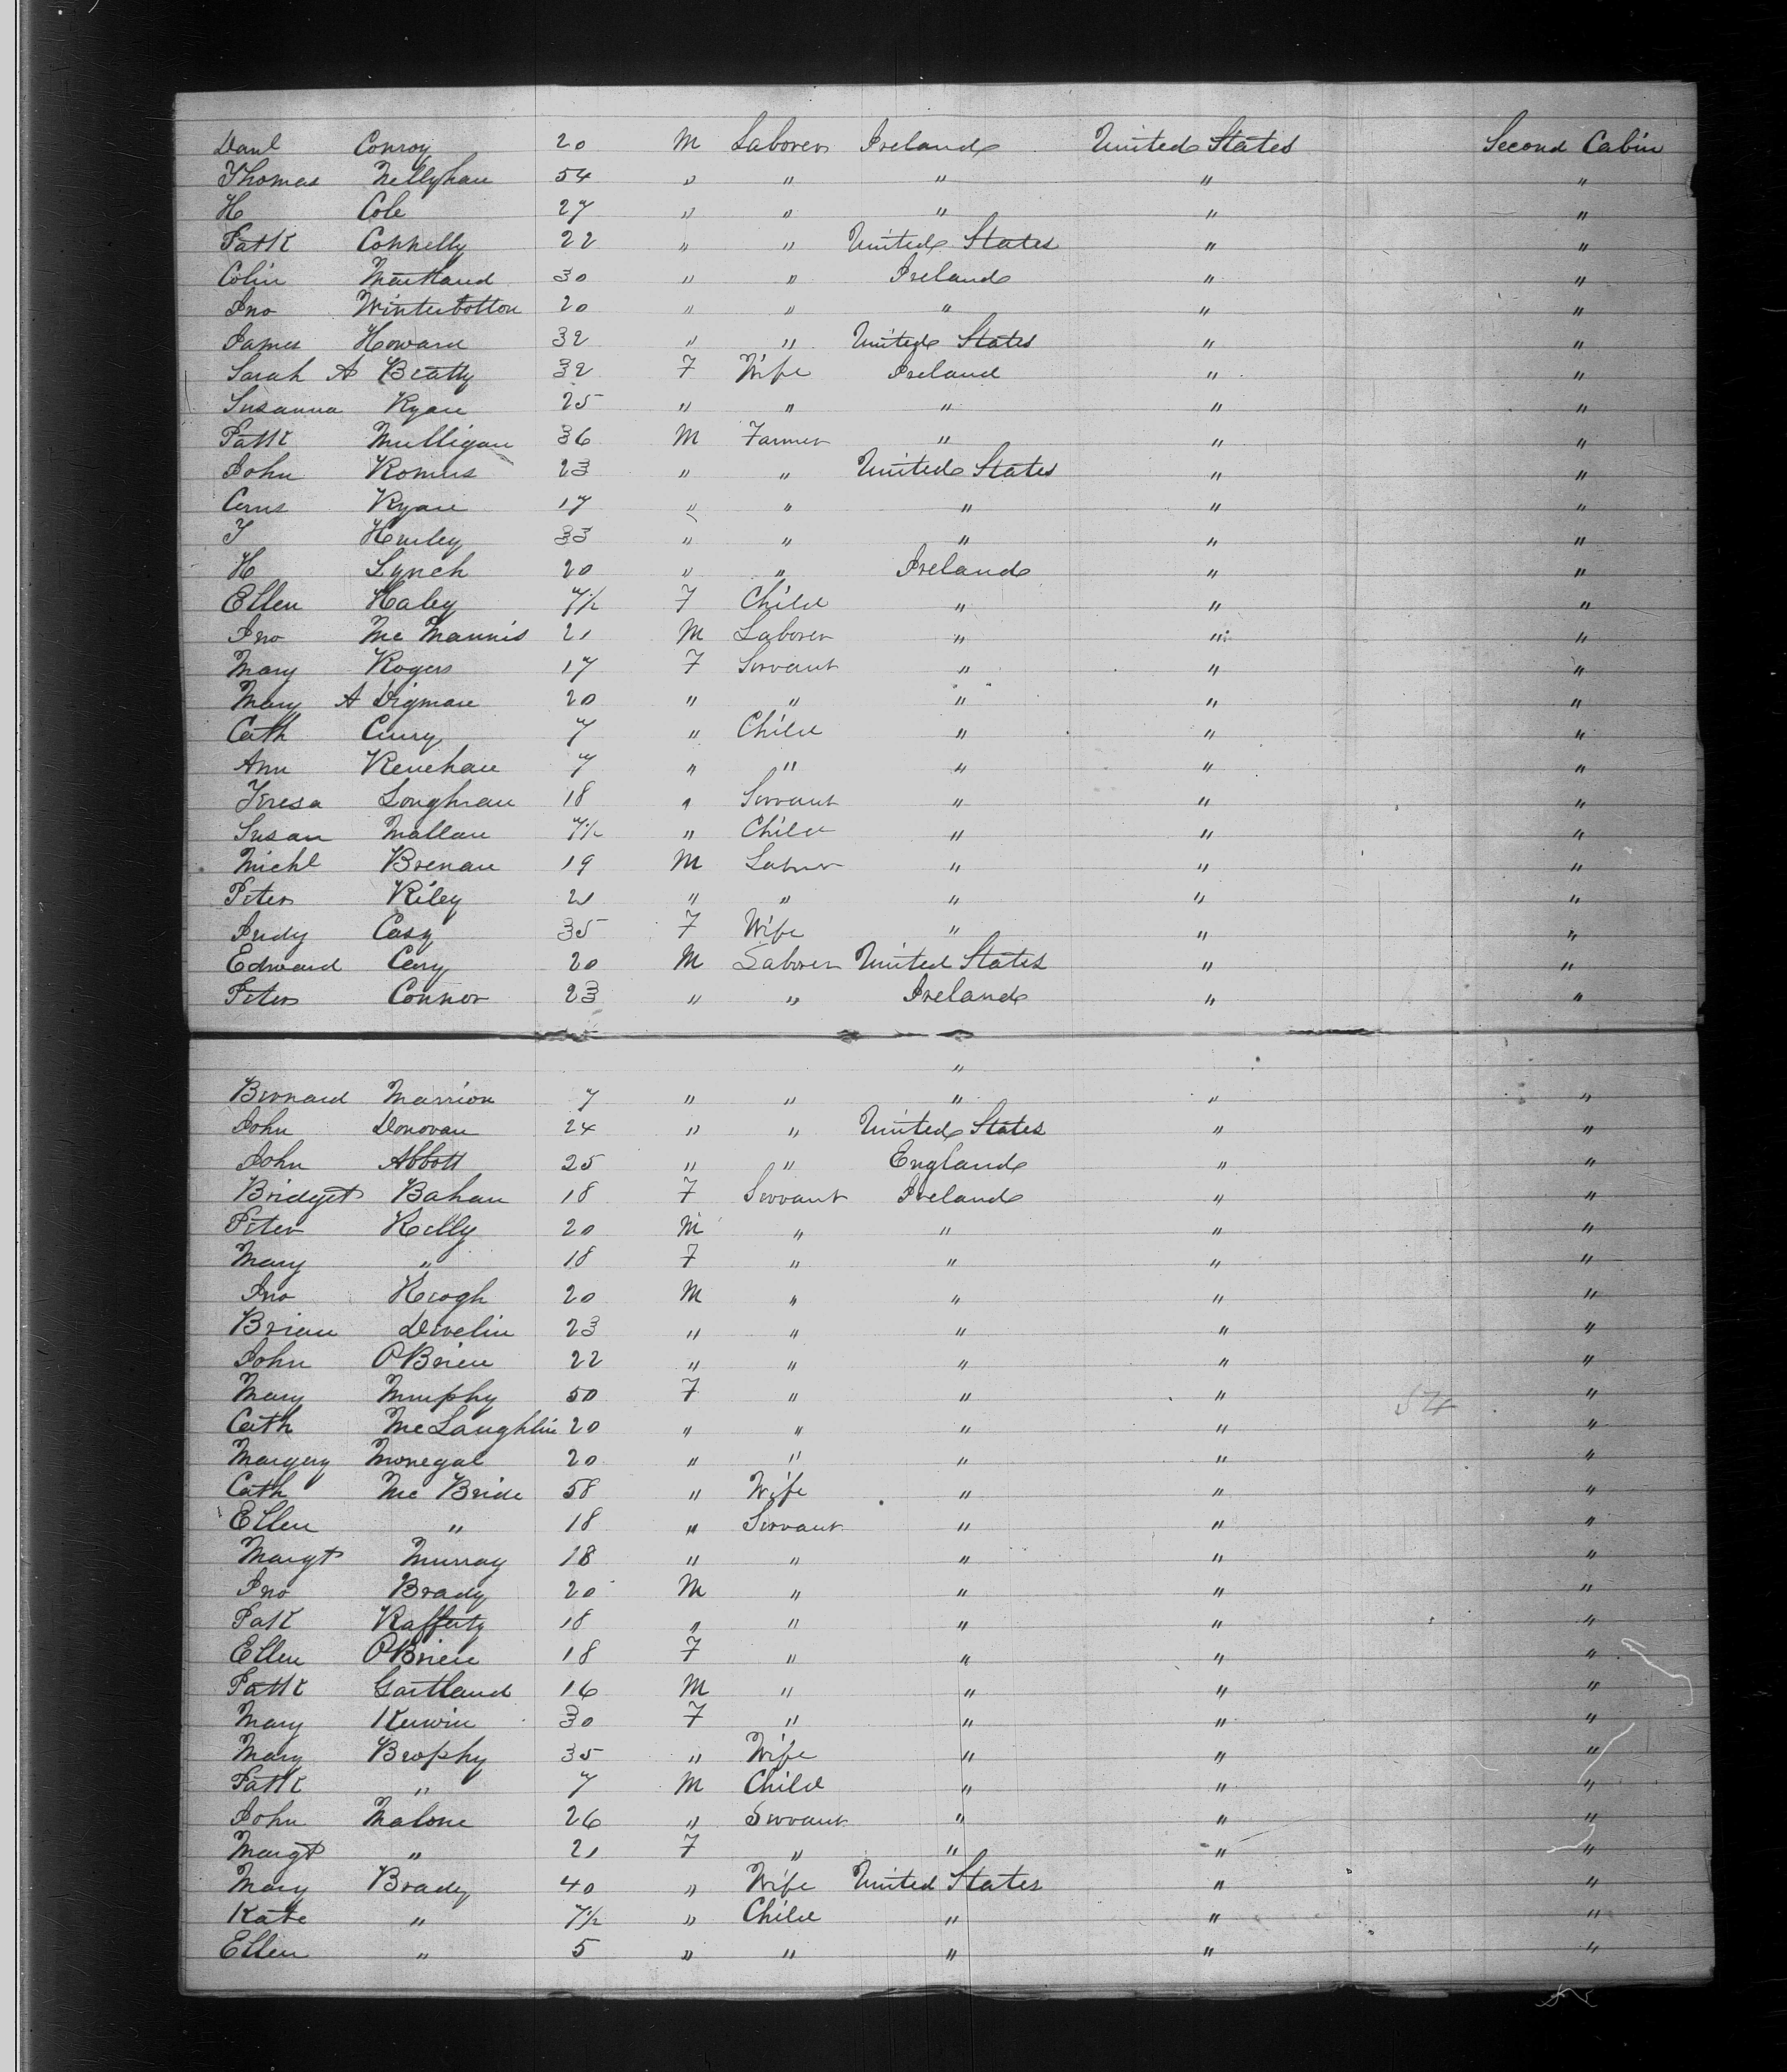 Danl Conroy 20 M Laborer Ireland United States Second Cabin
Thomas Nellyhan 54 " " " " "
H Cole 27 " " " " "
Patk Connelly 22 " " United States " "
Colin Maitland 30 " " Ireland " "
Jno Winterbotton 20 " " " " "
James Howard 32 " " United States " "
Sarah A Beatty 32 F Wife Ireland " "
Susanna Ryan 25 " " " " "
Patk Mulligan 36 M Farmer " " "
John Romus 23 " " United States " "
Ryan 17 " " " " "
T Hurley 33 " " " " "
H Lynch 20 " " Ireland " "
Ellen Haley 7½ F Child " " "
Jno McMannis 21 M Laborer " " "
Mary Rogers 17 F Servant " " "
Mary A Digman 20 " " " " "
Cath Curry 7 " Child " " "
Ann Renehan 7 " " " " "
Teresa Loughran 18 " Servant " " "
Susan Mallan 7½ " Child " " "
Michl Brenan 19 M Labrer " " "
Peter Riley 21 " " " " "
Judy Casy 35 F Wife " " "
Edward 20 M Laborer United States " "
Peter Connor 23 " " Ireland " "
"
Bernard Marrion 7 " " " " "
John Donovan 24 " " United States " "
John Abbott 25 " " England " "
Bridget Bahan 18 F Servant Ireland " "
Peter Kelly 20 M " " " "
Mary " 18 F " " " "
Jno Keogh 20 M " " " "
Brian Develin 23 " " " " "
John OBrien 22 " " " " "
Mary Murphy 50 F " " " 54 "
Cath McLaughlin 20 " " " " "
Margery Monegal 20 " " " " "
Cath McBride 58 " Wife " " "
Ellen " 18 " Servant " " "
Margt Murray 18 " " " " "
Jno Brady 20 M " " " "
Pak Rafferty 18 " " " " "
Ellen OBrien 18 F " " " "
Patk Gartland 16 M " " " "
Mary Kerwin 30 F " " " "
Mary Brophy 35 " Wife " " "
Patk " 7 M Child " " "
John Malone 26 " Servant " " "
Margt " 21 F " " " "
Mary Brady 40 " Wife United States " "
Kate " 7½ " Child " " "
Ellen " 5 " " " " "